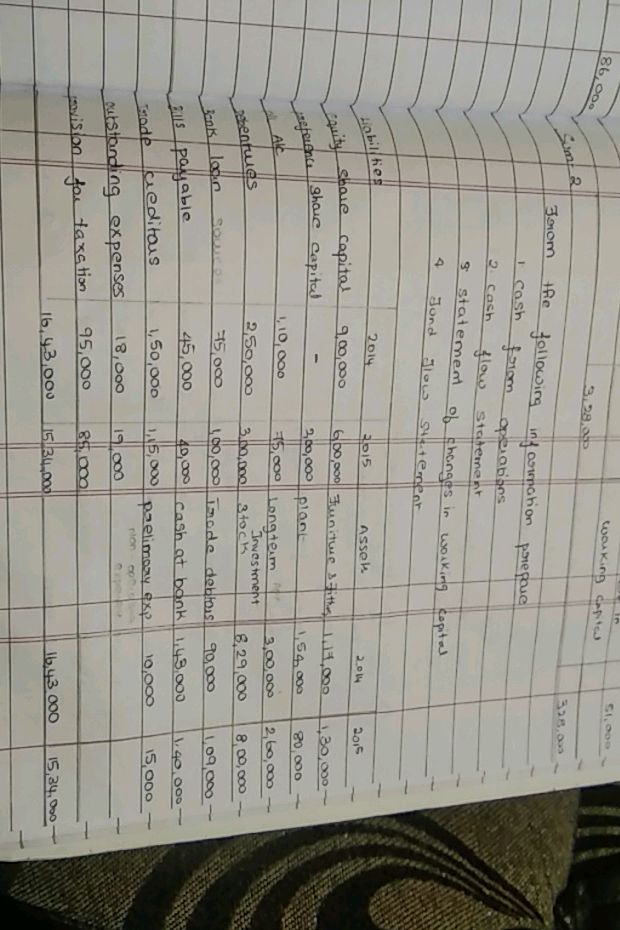 86,000
3,28,000
in
working capital
51,000
3,28,000
Sum: 2
From the following information prepare
1. cash from operations
2. cash flow statement
3 statement of changes in working capital
4 Fund Flow statement
Liabilities 2014 2015 Assets 2014 2015
Equity share capital 9,00,000 6,00,000 Furniture & Fitting 1,17,000 1,30,000
preference share capital - 200,000 plant 1,54,000 80,000
A/c 1,10,000 75,000 Longterm Investment 3,00,000 2,60,000
Debentures 250,000 3,00,000 Stock 8,29,000 8,00,000
Bank loan 75,000 1,00,000 Trade debtors 90,000 1,09,000
Bills payable 45,000 40,000 cash at bank 1,43,000 1,40,000
Trade creditors 1,50,000 1,15,000 prelimary exp 10,000 15,000
outstanding expenses 18,000 19,000
provision for taxation 95,000 85,000
16,43,000 15,34,000 16,43,000 15,34,000